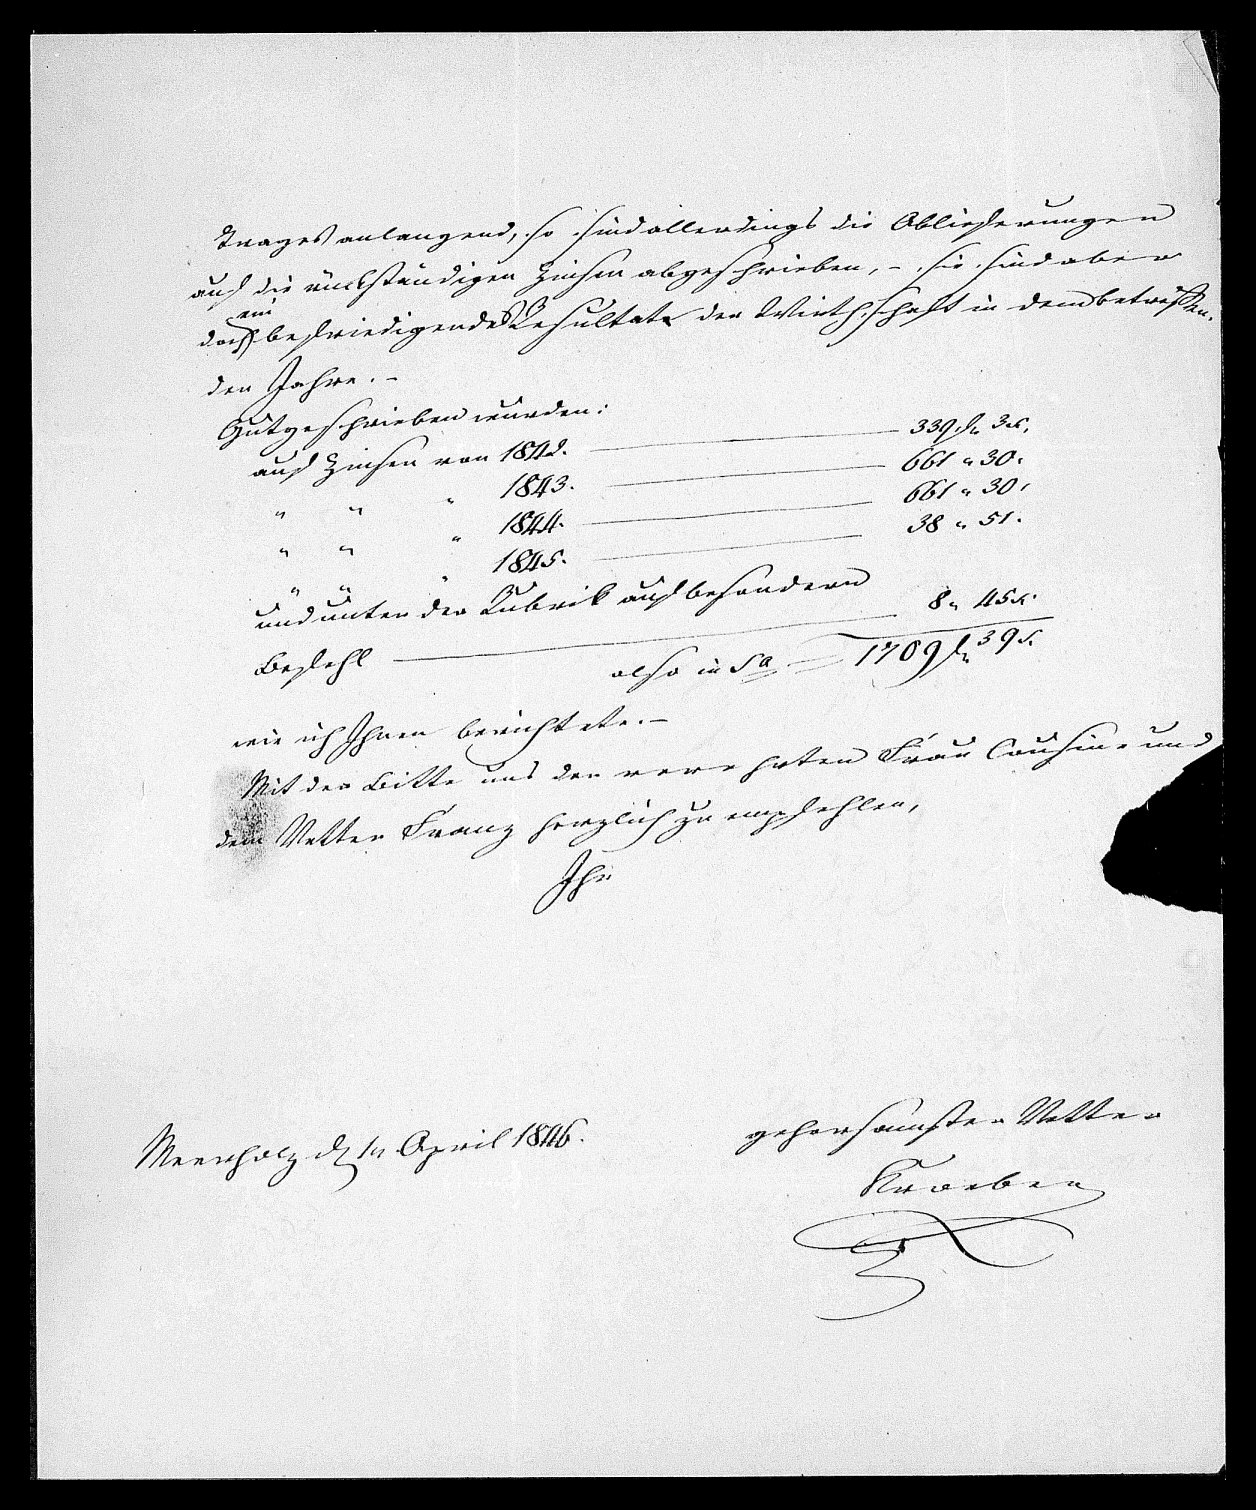 trages anlangend, so sind allerdings die Ablieferungen
auf die rückständigen Zinsen abgeschrieben, – sie sind aber
ein
doch befriedigendes Resultat der Wirthschaft in dem betreffen-
den Jahre. –
Gutgeschrieben wurden:
auf Zinsen von 1842. 339 fl. 3 x.
" " " 1843. 661 " 30.
" " " 1844. 661 " 30.
" " " 1845. 38 " 51.
und unter der Rubrik auf besondern
Befehl 8 " 45 x.
also in Sa 1709 fl. 39 x.
wie ich Ihnen berichtete. –
Mit der Bitte uns der verehrten Frau Cousine und
dem Vetter Franz herzlich zu empfehlen,
Ihr
gehorsamster Vetter
Meerholz d. April 1846.
Kroeber